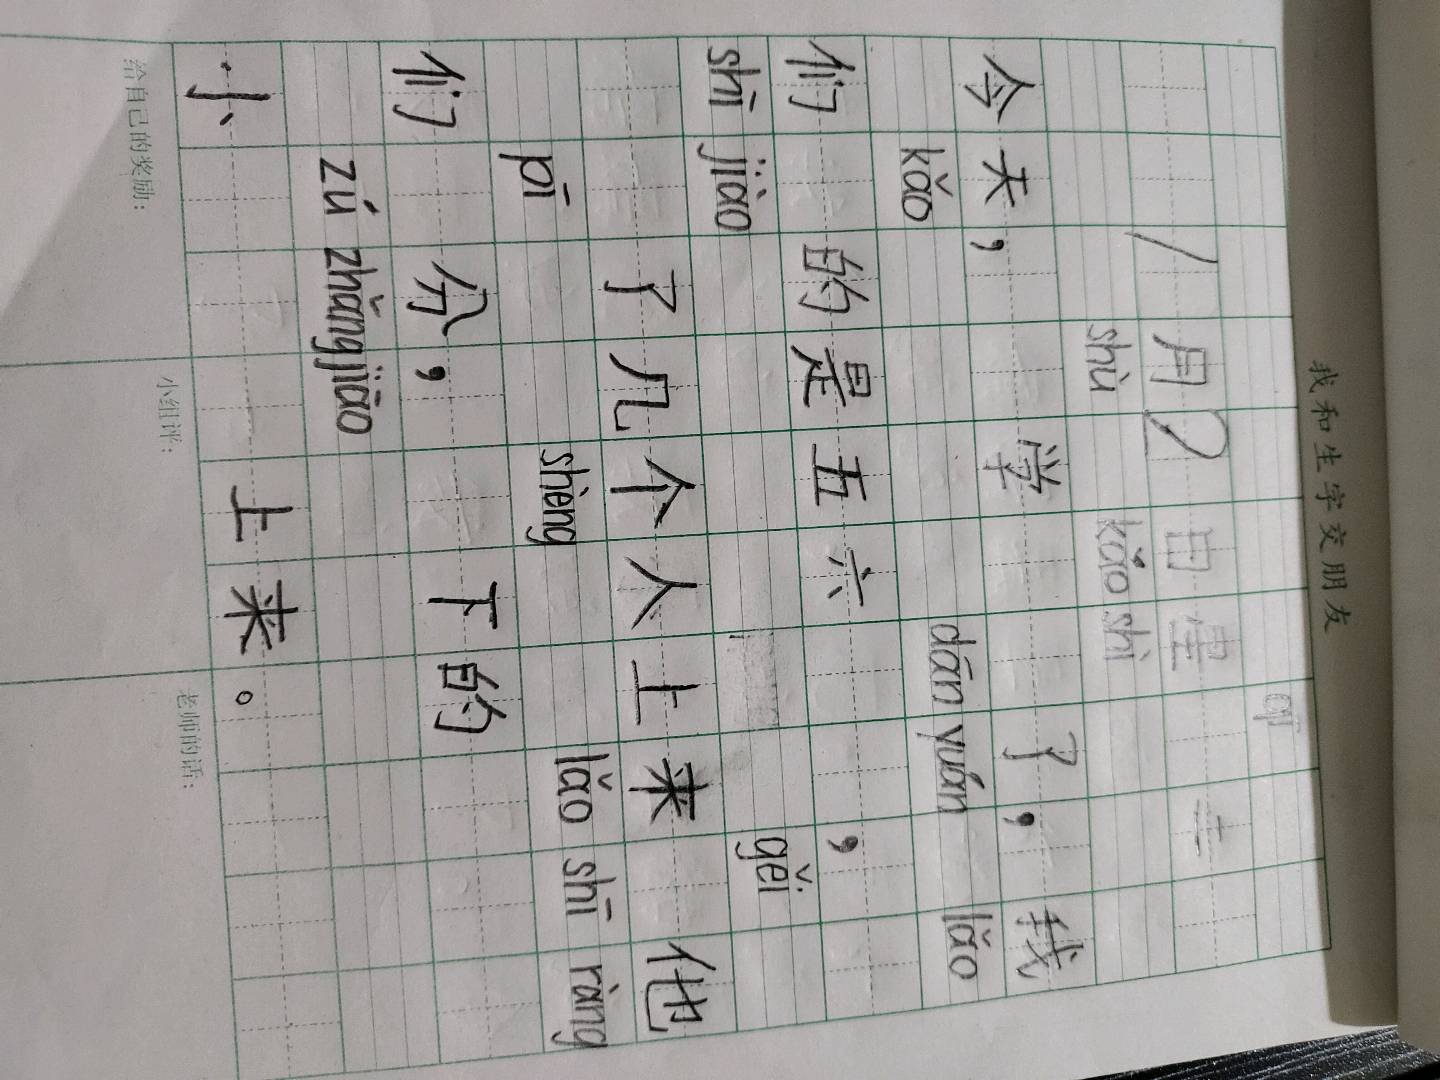 我和生字交朋友
qī
1月2日星 二
shù kǎo shì
今天, 学 了, 我
kǎo dān yuán lǎo
们 的是五六 ,
shī jiào gěi
了几个人上来 他
pī shèng lǎo shī ràng
们 分, 下的
zú zhǎng jiāo
小 上来。
给自己的奖励: 小组评: 老师的话: